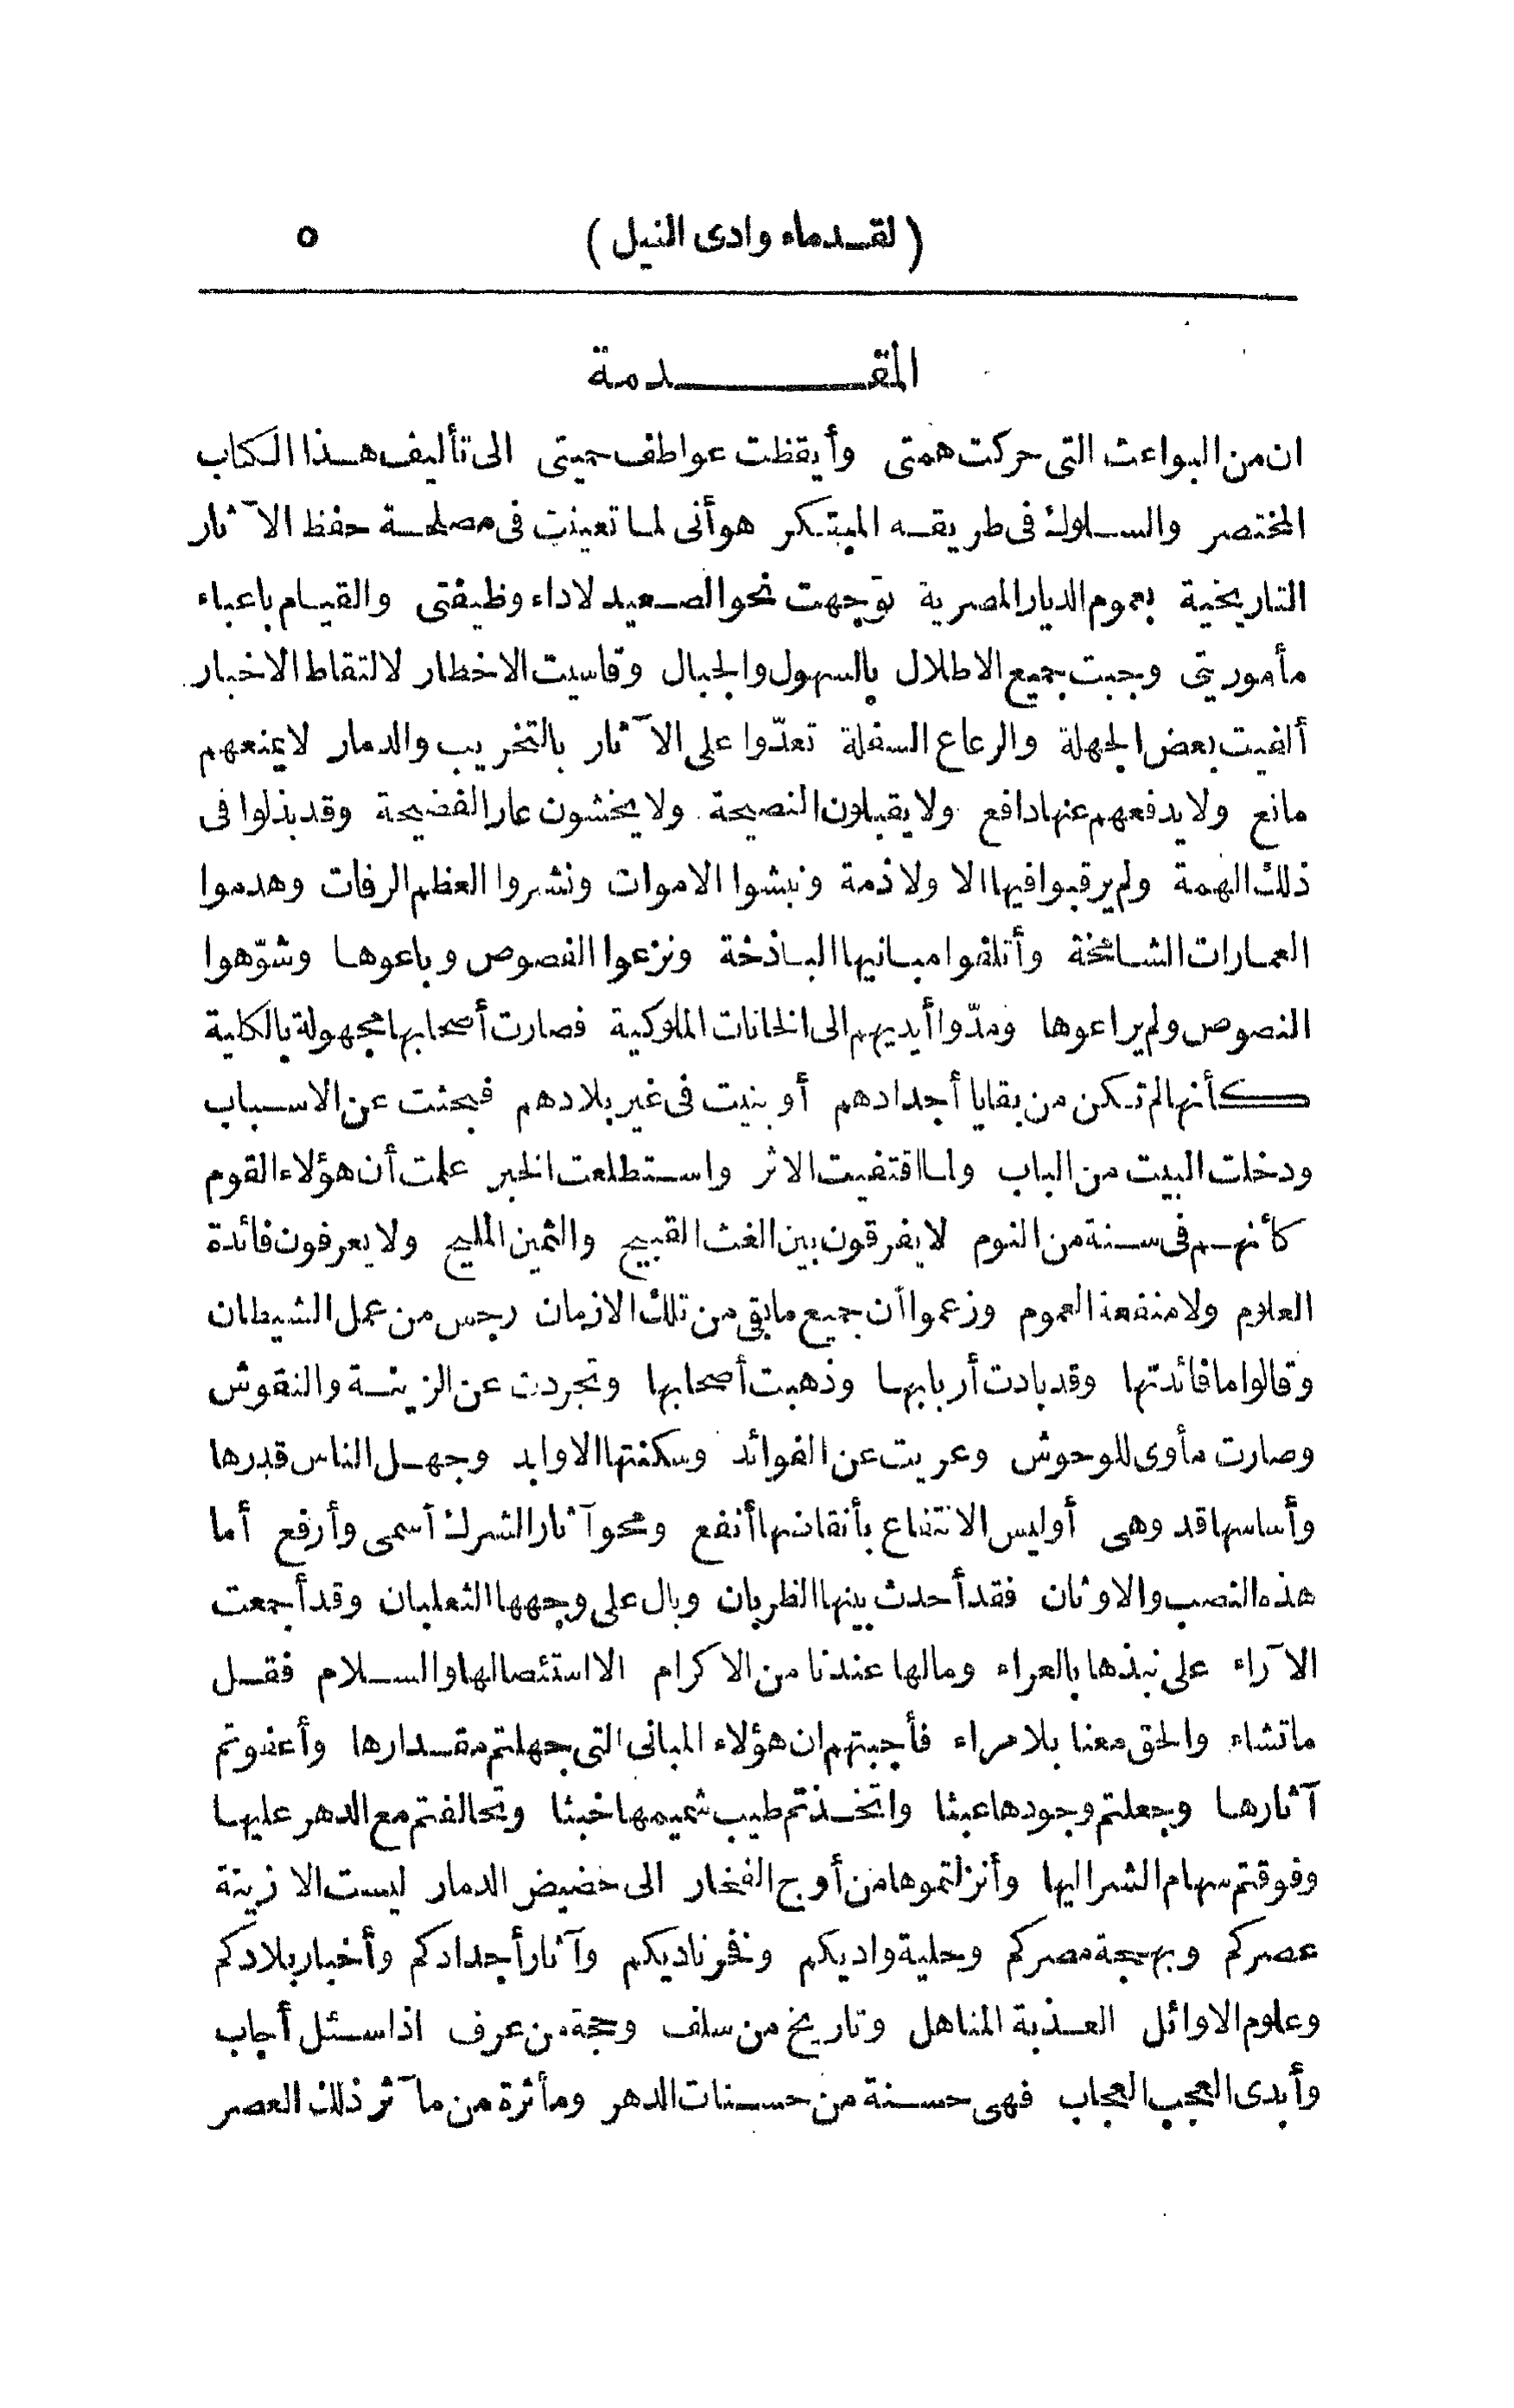 (لقدماء وادى النيل) ٥
المقدمة
ان من البواعث التى حركت همتى وأيقظت عواطف حميتى الى تأليف هذا الكتاب
المختصر والسلوك فى طريقه المبتكر هو أنى لما تعينت فى مصلحة حفظ الآثار
التاريخية بعموم الديار المصرية توجهت نحو الصعيد لاداء وظيفتى والقيام باعباء
مأموريتى وجبت جميع الاطلال بالسهول والجبال وقاسيت الاخطار لالتقاط الاخبار
ألفيت بعض الجهلة والرعاع السفلة تعدّوا على الآثار بالتخريب والدمار لا يمنعهم
مانع ولا يدفعهم عنها دافع ولا يقبلون النصيحة ولا يخشون عار الفضيحة وقد بذلوا فى
ذلك الهمة ولم يرقبوا فيها الا ولا ذمة ونبشوا الاموات ونشروا العظم الرفات وهدموا
العمارات الشامخة وأتلفوا مبانيها الباذخة ونزعوا الفصوص وباعوها وشوّهوا
النصوص ولم يراعوها ومدّوا أيديهم الى الخانات الملوكية فصارت أصحابها مجهولة بالكلية
كأنها لم تكن من بقايا أجدادهم أو بنيت فى غير بلادهم فبحثت عن الاسباب
ودخلت البيت من الباب ولما اقتفيت الاثر واستطلعت الخبر علمت أن هؤلاء القوم
كأنهم فى سنة من النوم لا يفرقون بين الغث القبيح والثمين المليح ولا يعرفون فائدة
العلوم ولا منفعة العموم وزعموا أن جميع ما بقى من تلك الازمان رجس من عمل الشيطان
وقالوا ما فائدتها وقد بادت أربابها وذهبت أصحابها وتجردت عن الزينة والنقوش
وصارت مأوى للوحوش وعريت عن الفوائد وسكنتها الاوابد وجهل الناس قدرها
وأساسها قد وهى أوليس الانتفاع بأنقاضها أنفع ومحو آثار الشرك أسمى وأرفع أما
هذه النصب والاوثان فقد أحدث بينها الظربان وبال على وجهها الثعلبان وقد أجمعت
الآراء على نبذها بالعراء وما لها عندنا من الاكرام الا استئصالها والسلام فقل
ما تشاء والحق معنا بلا مراء فأجبتهم ان هؤلاء المبانى التى جهلتم مقدارها وأعفوتم
آثارها وجعلتم وجودها عبثا واتخذتم طيب شميمها خبثا وتحالفتم مع الدهر عليها
وفوقتم سهام الشر اليها وأنزلتموها من أوج الفخار الى حضيض الدمار ليست الا زينة
عصركم وبهجة مصركم وحلية واديكم وفخر ناديكم وآثار أجدادكم وأخبار بلادكم
وعلوم الاوائل العذبة المناهل وتاريخ من سلف وحجة من عرف اذا سئل أجاب
وأبدى العجب العجاب فهى حسنة من حسنات الدهر ومأثرة من مآثر ذلك العصر